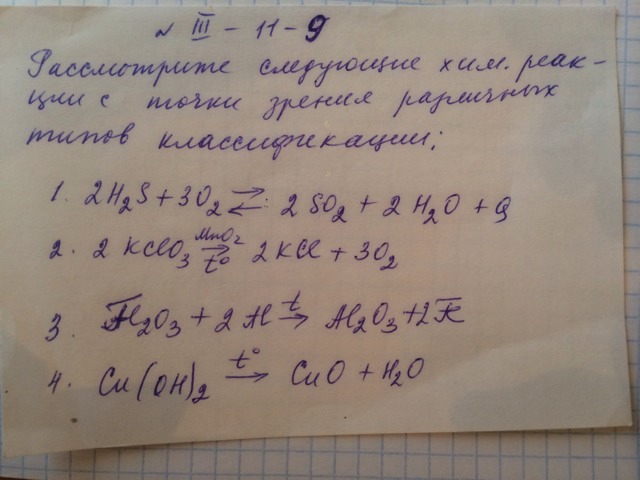 № III – 11 – 9
Рассмотрите следующие хим. реак-
ции с точки зрения различных
типов классификации:
1. 2H₂S + 3O₂ ⇄ 2SO₂ + 2H₂O + Q
2. 2KClO₃ MnO₂→t° 2KCl + 3O₂
3. Fe₂O₃ + 2Al t→ Al₂O₃ + 2Fe
4. Cu(OH)₂ t°→ CuO + H₂O